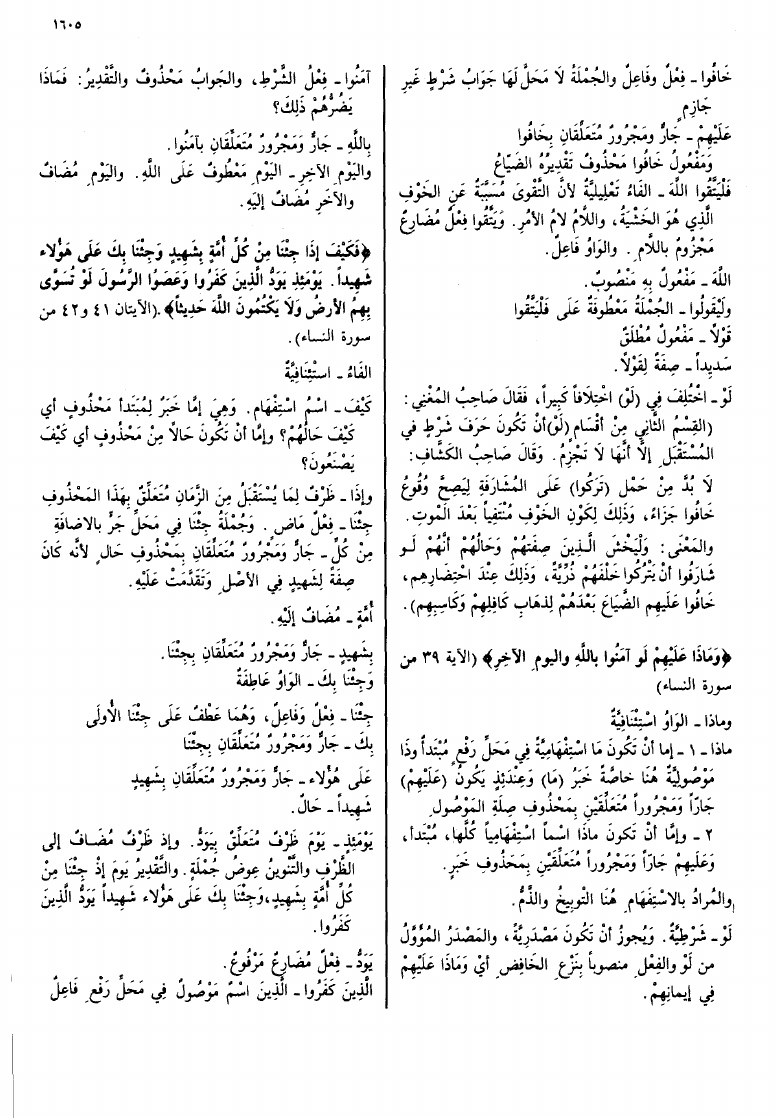 ١٦٠٥
خافُوا ـ فِعْلٌ وفَاعِلٌ والجُمْلَةُ لَا مَحَلَّ لَهَا جَوَابُ شَرْطٍ غَيرِ
جَازِمٍ
عَلَيْهِمْ ـ جَارٌّ ومَجْرُورٌ مُتَعَلِّقَانِ بِخَافُوا
وَمَفْعُولُ خَافُوا مَحْذُوفٌ تَقْدِيرُهُ الضَيَاعُ
فَلْيَتَّقُوا اللَّهَ ـ الفَاءُ تَعْلِيلِيَّةٌ لأنَّ التَّقْوىَ مُسَبَّبَةٌ عَنِ الخَوْفِ
الَّذِي هُوَ الخَشْيَةُ، واللَّامُ لامُ الأمْرِ. وَيَتَّقُوا فِعْلٌ مُضَارِعٌ
مَجْزُومٌ باللَّامِ. والوَاوُ فَاعِلٌ.
اللَّهَ ـ مَفْعُولٌ بِهِ مَنْصُوبٌ.
ولْيَقُولُوا ـ الجُمْلَةُ مَعْطُوفَةٌ عَلَى فَلْيَتَّقُوا
قَوْلاً ـ مَفْعُولٌ مُطْلَقٌ
سَدِيداً ـ صِفَةٌ لِقَوْلاً.
لَوْ ـ اخْتُلِفَ فِي (لَوْ) اخْتِلَافاً كَبِيراً، فَقَالَ صَاحِبُ المُغْنِي:
(القِسْمُ الثَّانِي مِنْ أقْسَامِ (لَوْ) أنْ تَكُونَ حَرفَ شَرْطٍ في
المُسْتَقْبَلِ إلَّا أنَّهَا لَا تَجْزِمُ. وَقَالَ صَاحِبُ الكَشَّافِ:
لَا بُدَّ مِنْ حَمْلِ (تَرَكُوا) عَلَى المُشَارَفَةِ لِيَصِحَّ وُقُوعُ
خَافُوا جَزَاءً، وَذَلِكَ لِكَوْنِ الخَوْفِ مُنْتَفِياً بَعْدَ الْموتِ.
والمَعْنَى: وَلْيَخْشَ الَّـذِينَ صِفَتُهُمْ وَحَالُهُمْ أنَّهُمْ لَـو
شَارَفُوا أنْ يَتْرُكُوا خَلْفَهُمْ ذُرِّيَّةً، وَذَلِكَ عِنْدَ احْتِضَارِهِم،
خَافُوا عَلَيهِم الضَّيَاعَ بَعْدَهُمْ لِذهَابِ كَافِلِهِمْ وَكَاسِبِهِم).
﴿وَمَاذَا عَلَيْهِمْ لَو آمَنُوا باللَّهِ واليومِ الآخِرِ﴾ (الآية ٣٩ من
سورة النساء)
وماذا ـ الوَاوُ اسْتِئْنَافِيَّةٌ
ماذا ـ ١ ـ إما أنْ تَكُونَ مَا اسْتِفْهَامِيَّةٌ فِي مَحَلِّ رَفْعٍ مُبْتَدأ وذَا
مَوْصُولِيَّةٌ هُنَا خاصَّةً خَبَرُ (مَا) وَعِنْدَئِذٍ يَكُونُ (عَلَيْهِمْ)
جَارّاً وَمَجْرُوراً مُتَعَلِّقَيْنِ بِمَحْذُوفِ صِلَةِ الْمَوْصُولِ
٢ ـ وإمَّا أنْ تَكونَ ماذَا اسْماً اسْتِفْهَامِياً كُلَّها، مُبْتَدأ،
وَعَلَيهِمِ جَارّاً وَمَجْرُوراً مُتَعَلِّقَيْنِ بِمَحْذُوفِ خَبَرٍ.
والمُرادُ بالاسْتِفْهَامِ هُنَا التْوبِيخُ والذَّمُّ.
لَوْ ـ شَرْطِيَّةٌ. وَيَجوزُ أنْ تَكُونَ مَصْدَرِيَّةً، والمَصْدَرُ المُؤَوَّلُ
من لَوْ والفِعْلِ منصوباً بِنَزْعِ الخَافِضِ أيْ وَمَاذا عَلَيْهِمْ
فِي إيمانِهِمْ.
آمَنُوا ـ فِعْلُ الشَّرْطِ، والجَوابُ مَحْذُوفٌ والتَّقْدِيرُ: فَمَاذَا
يَضُرُّهُمْ ذَلِكَ؟
بِاللَّهِ ـ جَارٌّ وَمَجْرُورٌ مُتَعَلِّقَانِ بآمَنُوا.
واليَوْمِ الآخِرِ ـ اليَوْمِ مَعْطُوفٌ عَلَى اللَّهِ. واليَوْمِ مُضَافٌ
والآخَرِ مُضَافٌ إلَيْهِ.
﴿فَكَيْفَ إذَا جِئْنَا مِنْ كُلِّ أمَّةٍ بِشَهِيدٍ وَجِئْنَا بِكَ عَلَى هَؤُلاء
شَهِيداً. يَوْمَئِذٍ يَوَدُّ الَّذِينَ كَفَرُوا وَعَصَوُا الرَّسُولَ لَوْ تُسَوَّى
بِهِمُ الأرضُ وَلَا يَكْتُمُونَ اللَّهَ حَدِيثاً﴾. (الآيتان ٤١ و٤٢ من
سورة النساء).
الفَاءُ ـ اسْتِئْنَافِيَّةٌ
كَيْفَ ـ اسْمُ اسْتِفْهَامٍ. وَهِيَ إمَّا خَبَرٌ لِمُبْتَدأ مَحْذُوفٍ أي
كَيْفَ حَالُهُمْ؟ وإمَّا أنْ تَكُونَ حَالاً مِنْ مَحْذُوفٍ أي كَيْفَ
يَصْنَعُونَ؟
وإذَا ـ ظَرْفٌ لِمَا يُسْتَقْبَلُ مِنَ الزَّمَانِ مُتَعَلِّقٌ بِهَذَا المَحْذُوفِ
جِئْنَا ـ فِعْلٌ مَاضٍ. وَجُمْلَةُ جِئْنَا فِي مَحَلِّ جَرٍّ بالاضَافَةِ
مِنْ كُلِّ ـ جَارٌّ وَمَجْرُورٌ مُتَعَلِّقَانِ بِمَحْذُوفِ حَالٍ لأنَّه كَانَ
صِفَةً لِشَهِيدٍ فِي الأصْلِ وَتَقَدَّمَتْ عَلَيْهِ.
أُمَّةٍ ـ مُضَافٌ إلَيْهِ.
بِشَهِيدٍ ـ جَارٌّ وَمَجْرُورٌ مُتَعَلِّقَانِ بِجِئْنَا.
وَجِئْنَا بِكَ ـ الوَاوُ عَاطِفَةٌ
جِئْنَا ـ فِعْلٌ وَفَاعِلٌ، وَهُمَا عَطْفٌ عَلَى جِئْنَا الأُولَى
بِكَ ـ جَارٌّ وَمَجْرُورٌ مُتَعَلِّقَانِ بِجِئْنَا
عَلَى هُؤْلاء ـ جَارٌّ وَمَجْرُورٌ مُتَعَلِّقَانِ بِشَهِيدٍ
شَهِيداً ـ حَالٌ.
يَوْمَئِذٍ ـ يَوْمَ ظَرْفٌ مُتَعَلِّقٌ بِيَوَدُّ. وإذ ظَرْفٌ مُضَـافٌ إلى
الظَّرْفِ والتَّنْوِينُ عِوضُ جُمْلَةٍ. والتَّقْدِيرُ يَومَ إذْ جِئْنَا مِنْ
كُلِّ أمَّةٍ بِشَهِيدٍ، وَجِئْنَا بِكَ عَلَى هَؤُلاء شَهِيداً يَوَدُّ الَّذِينَ
كَفَرُوا.
يَوَدُّ ـ فِعْلٌ مُضَارِعٌ مَرْفُوعٌ.
الَّذِينَ كَفَرُوا ـ الَّذِينَ اسْمٌ مَوْصُولٌ فِي مَحَلِّ رَفْعٍ فَاعِلٌ